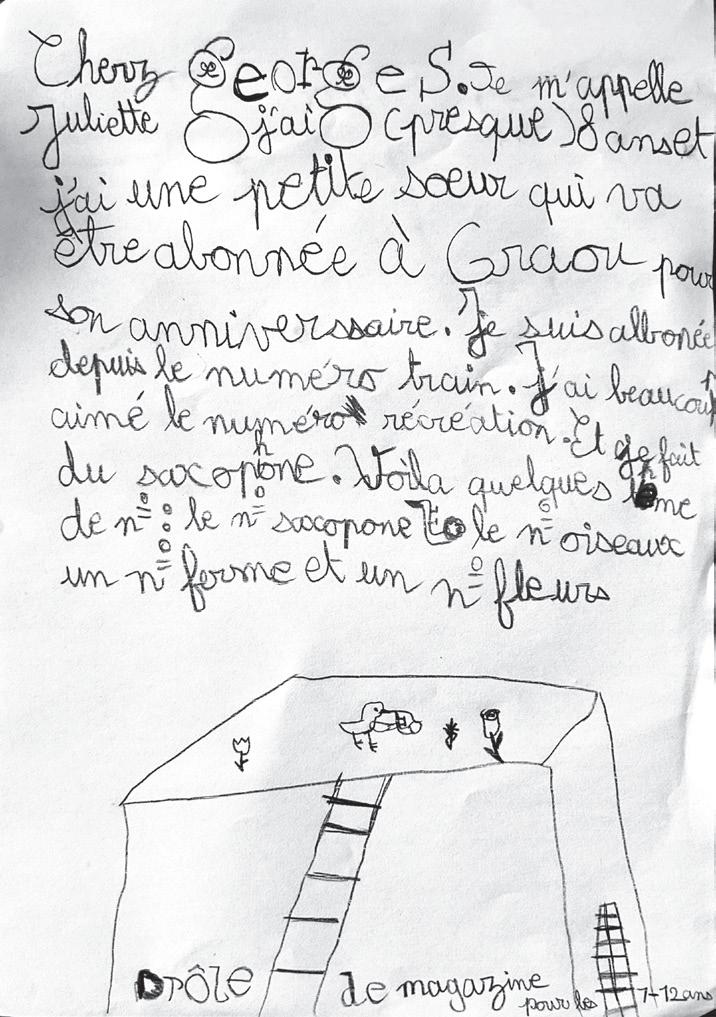 Cherz GeorGe S. Je m'appelle
Juliette j'ai (presque) 8 anset
j'ai une petite sœur qui va
être abonnée à Graou pour
son anniverssaire. Je suis albonée
depuis le numéro train. J'ai beaucoup
aimé le numéro récréation. Et ge fait
du saxopone. Voila quelques
de n°: le n° saxopone le n° oiseaux
un n° ferme et un n° fleurs
DrÔle de magazine
pour les 7-12 ans